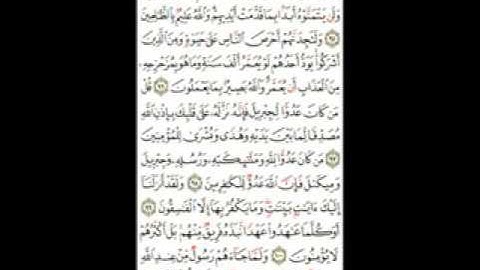 وَلَن يَتَمَنَّوْهُ أَبَدًا بِمَا قَدَّمَتْ أَيْدِيهِمْ وَاللَّهُ عَلِيمٌ بِالظَّالِمِينَ
٩٥ وَلَتَجِدَنَّهُمْ أَحْرَصَ النَّاسِ عَلَىٰ حَيَوٰةٍ وَمِنَ الَّذِينَ
أَشْرَكُوا يَوَدُّ أَحَدُهُمْ لَوْ يُعَمَّرُ أَلْفَ سَنَةٍ وَمَا هُوَ بِمُزَحْزِحِهِ
مِنَ الْعَذَابِ أَن يُعَمَّرَ وَاللَّهُ بَصِيرٌ بِمَا يَعْمَلُونَ ٩٦ قُلْ
مَن كَانَ عَدُوًّا لِّجِبْرِيلَ فَإِنَّهُ نَزَّلَهُ عَلَىٰ قَلْبِكَ بِإِذْنِ اللَّهِ
مُصَدِّقًا لِّمَا بَيْنَ يَدَيْهِ وَهُدًى وَبُشْرَىٰ لِلْمُؤْمِنِينَ
٩٧ مَن كَانَ عَدُوًّا لِّلَّهِ وَمَلَٰٓئِكَتِهِ وَرُسُلِهِ وَجِبْرِيلَ
وَمِيكَىٰلَ فَإِنَّ اللَّهَ عَدُوٌّ لِّلْكَٰفِرِينَ ٩٨ وَلَقَدْ أَنزَلْنَا
إِلَيْكَ ءَايَٰتٍ بَيِّنَٰتٍ وَمَا يَكْفُرُ بِهَا إِلَّا الْفَٰسِقُونَ ٩٩
أَوَكُلَّمَا عَٰهَدُوا عَهْدًا نَّبَذَهُ فَرِيقٌ مِّنْهُم بَلْ أَكْثَرُهُمْ
لَا يُؤْمِنُونَ ١٠٠ وَلَمَّا جَاءَهُمْ رَسُولٌ مِّنْ عِندِ اللَّهِ